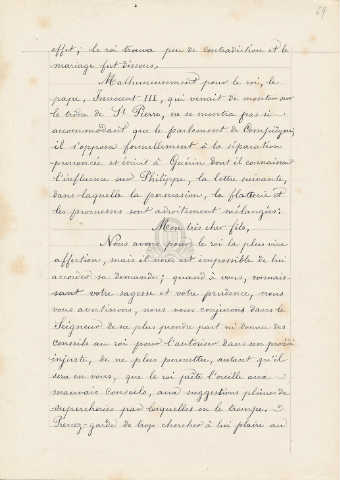 69
effet; le roi trouva peu de contradiction et le
mariage fut dissous.
Malheureusement pour le roi, le
pape, Innocent III, qui venait de monter sur
le trône de St Pierre, ne se montra pas si
accommodant que le parlement de Compiègne;
il s'opposa formellement à la séparation
prononcée et écrivit à Guérin dont il connaissait
l'influence sur Philippe, la lettre suivante,
dans laquelle la persuasion, la flatterie et
les promesses sont adroitement mélangées:
Mon très cher fils,
Nous avons pour le roi la plus vive
affection, mais il nous est impossible de lui
accorder sa demande; quant à vous, connais-
sant votre sagesse et votre prudence, nous
vous avertissons, nous vous conjurons dans le
Seigneur de ne plus prendre part ni donner des
conseils au roi pour l'autoriser dans son procédé
injuste, de ne plus permettre, autant qu'il
sera en vous, que le roi prête l'oreille aux
mauvais conseils, aux suggestions pleines de
supercheries par lesquelles on le trompe.
Prenez-garde de trop chercher à lui plaire au